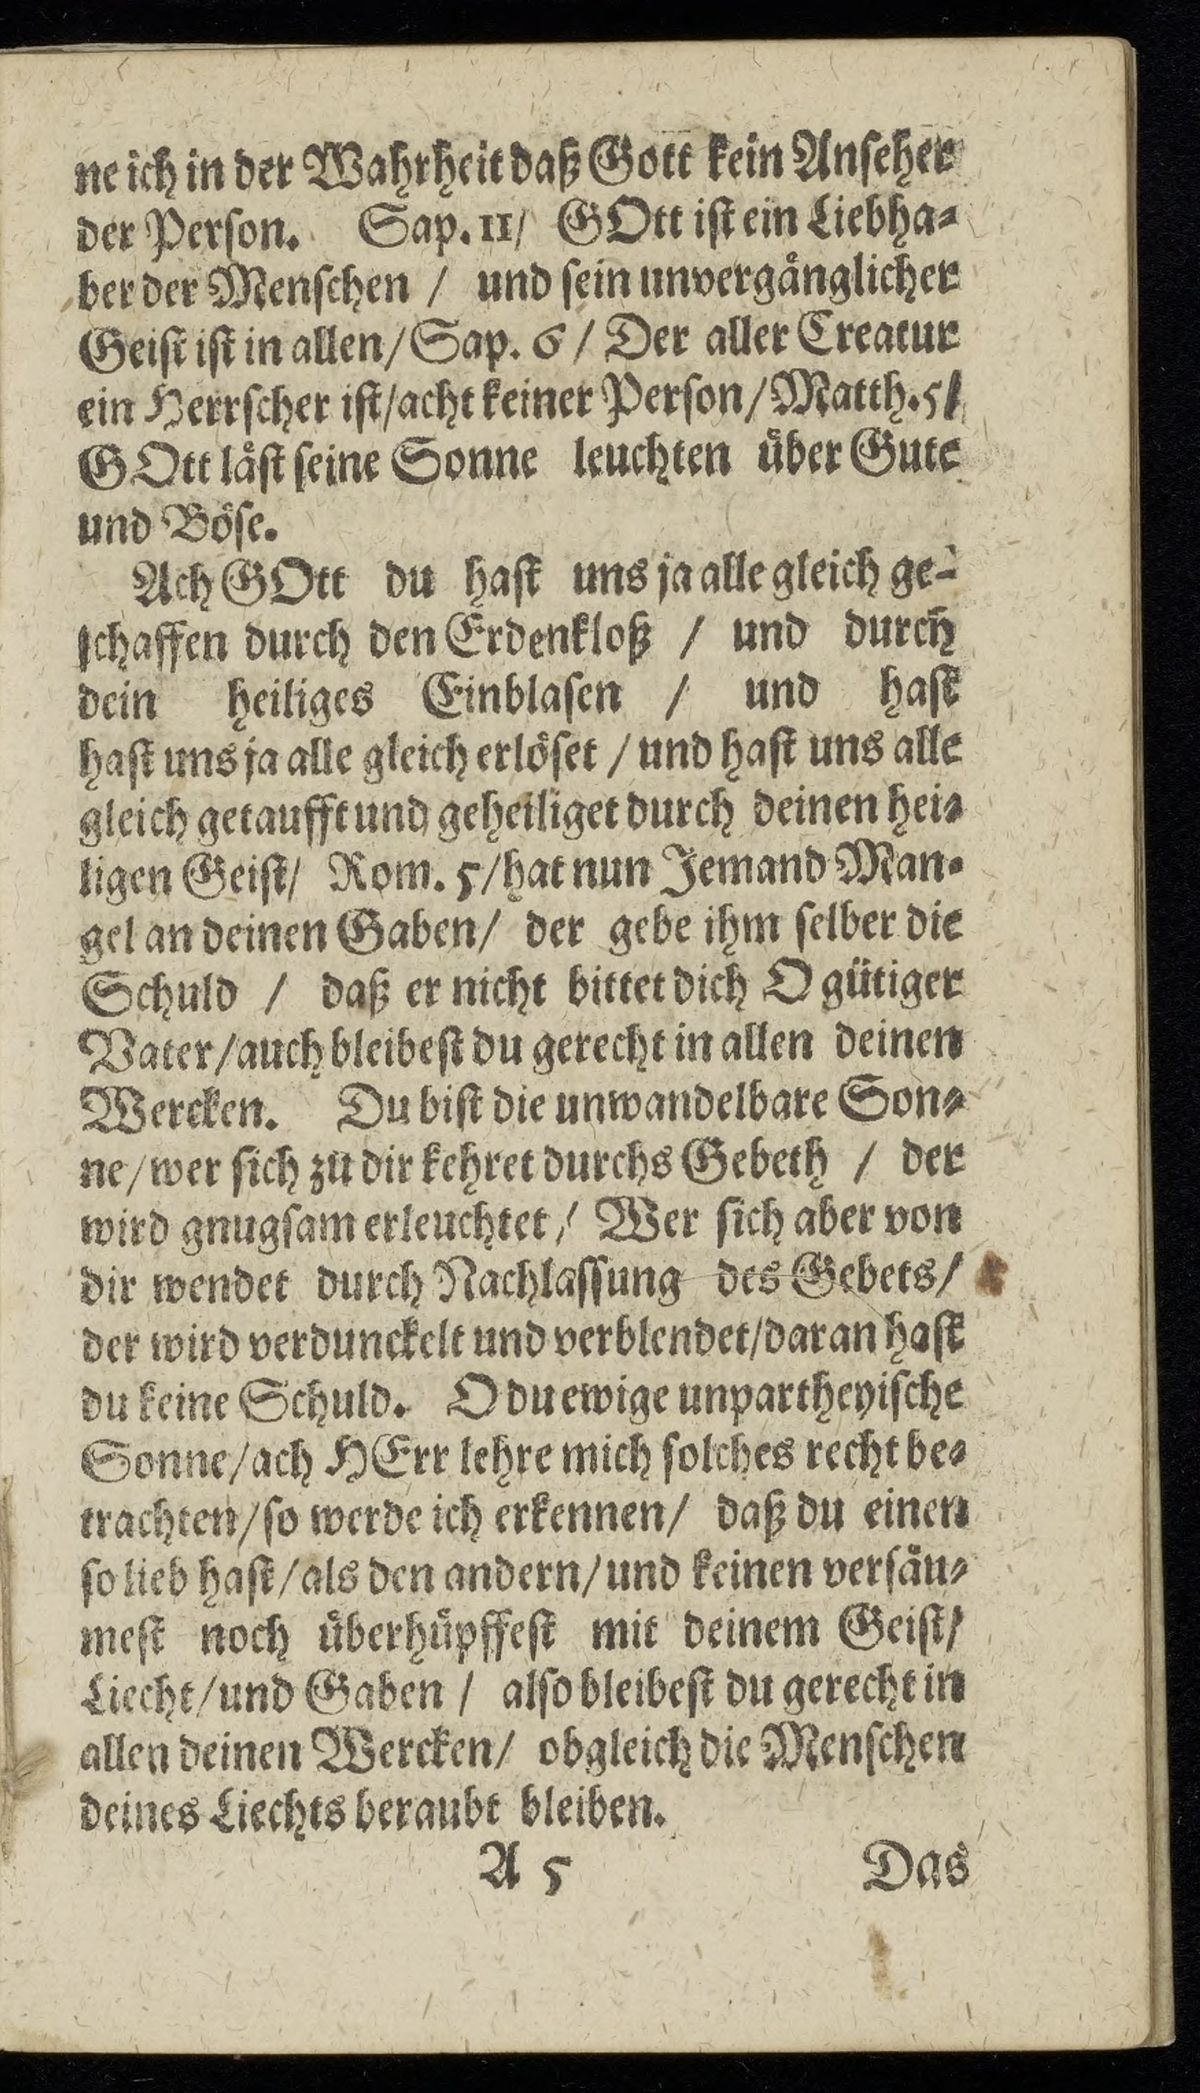 ne ich in der Wahrheit daß Gott kein Anseher
der Person. Sap. 11/ GOtt ist ein Liebha-
ber der Menschen / und sein unvergänglicher
Geist ist in allen/ Sap. 6 / Der aller Creatur
ein Herrscher ist/ acht keiner Person/ Matth. 5/
GOtt läst seine Sonne leuchten über Gute
und Böse.
Ach GOtt du hast uns ja alle gleich ge-
schaffen durch den Erdenkloß / und durch
dein heiliges Einblasen / und hast
hast uns ja alle gleich erlöset / und hast uns alle
gleich getaufft und geheiliget durch deinen hei-
ligen Geist/ Rom. 5/ hat nun Jemand Man-
gel an deinen Gaben/ der gebe ihm selber die
Schuld / daß er nicht bittet dich O gütiger
Vater/ auch bleibest du gerecht in allen deinen
Wercken. Du bist die unwandelbare Son-
ne/ wer sich zu dir kehret durchs Gebeth / der
wird gnugsam erleuchtet/ Wer sich aber von
dir wendet durch Nachlassung des Gebets/
der wird verdunckelt und verblendet/ daran hast
du keine Schuld. O du ewige unpartheyische
Sonne/ ach HErr lehre mich solches recht be-
trachten/ so werde ich erkennen/ daß du einen
so lieb hast/ als den andern/ und keinen versäu-
mest noch überhüpffest mit deinem Geist/
Liecht/ und Gaben / also bleibest du gerecht in
allen deinen Wercken/ obgleich die Menschen
deines Liechts beraubt bleiben.
A 5 Das